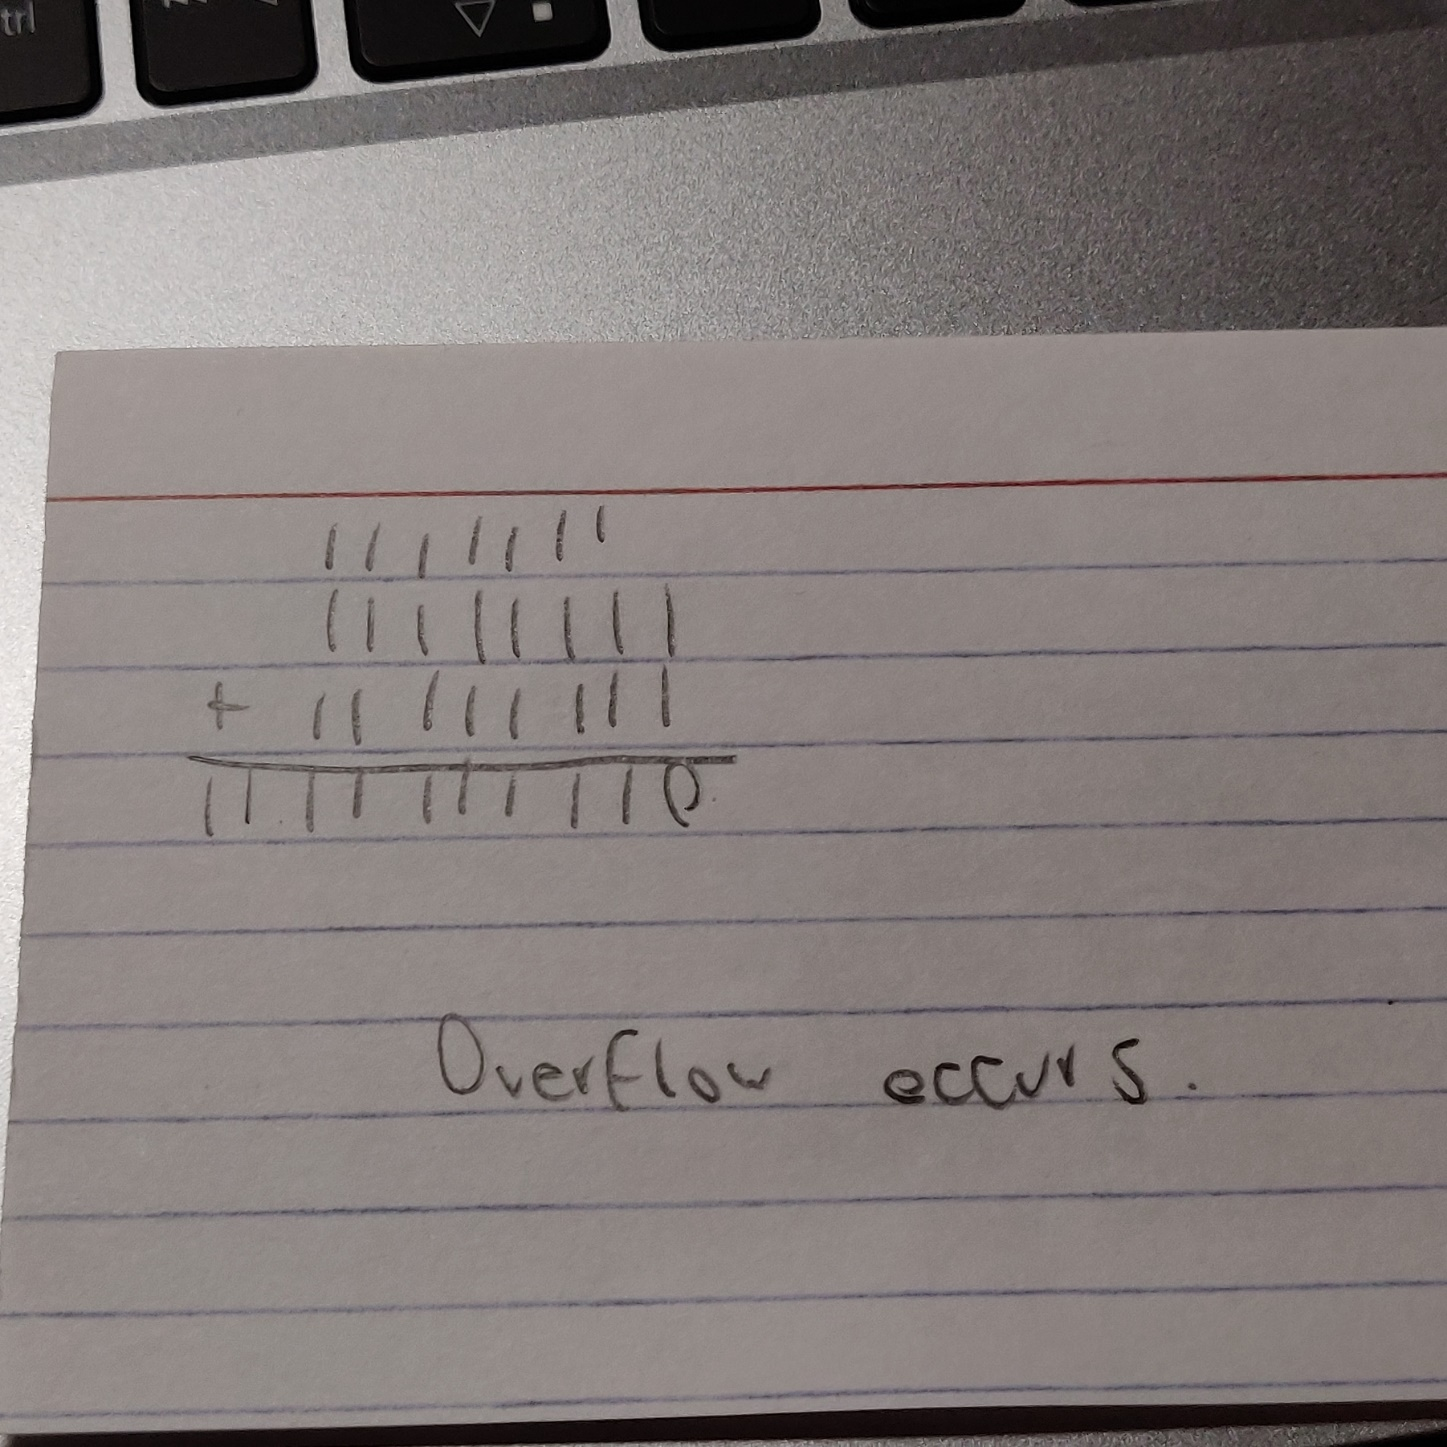 trl
1111111
11111111
+ 11111111
1111111110
Overflow occurs.